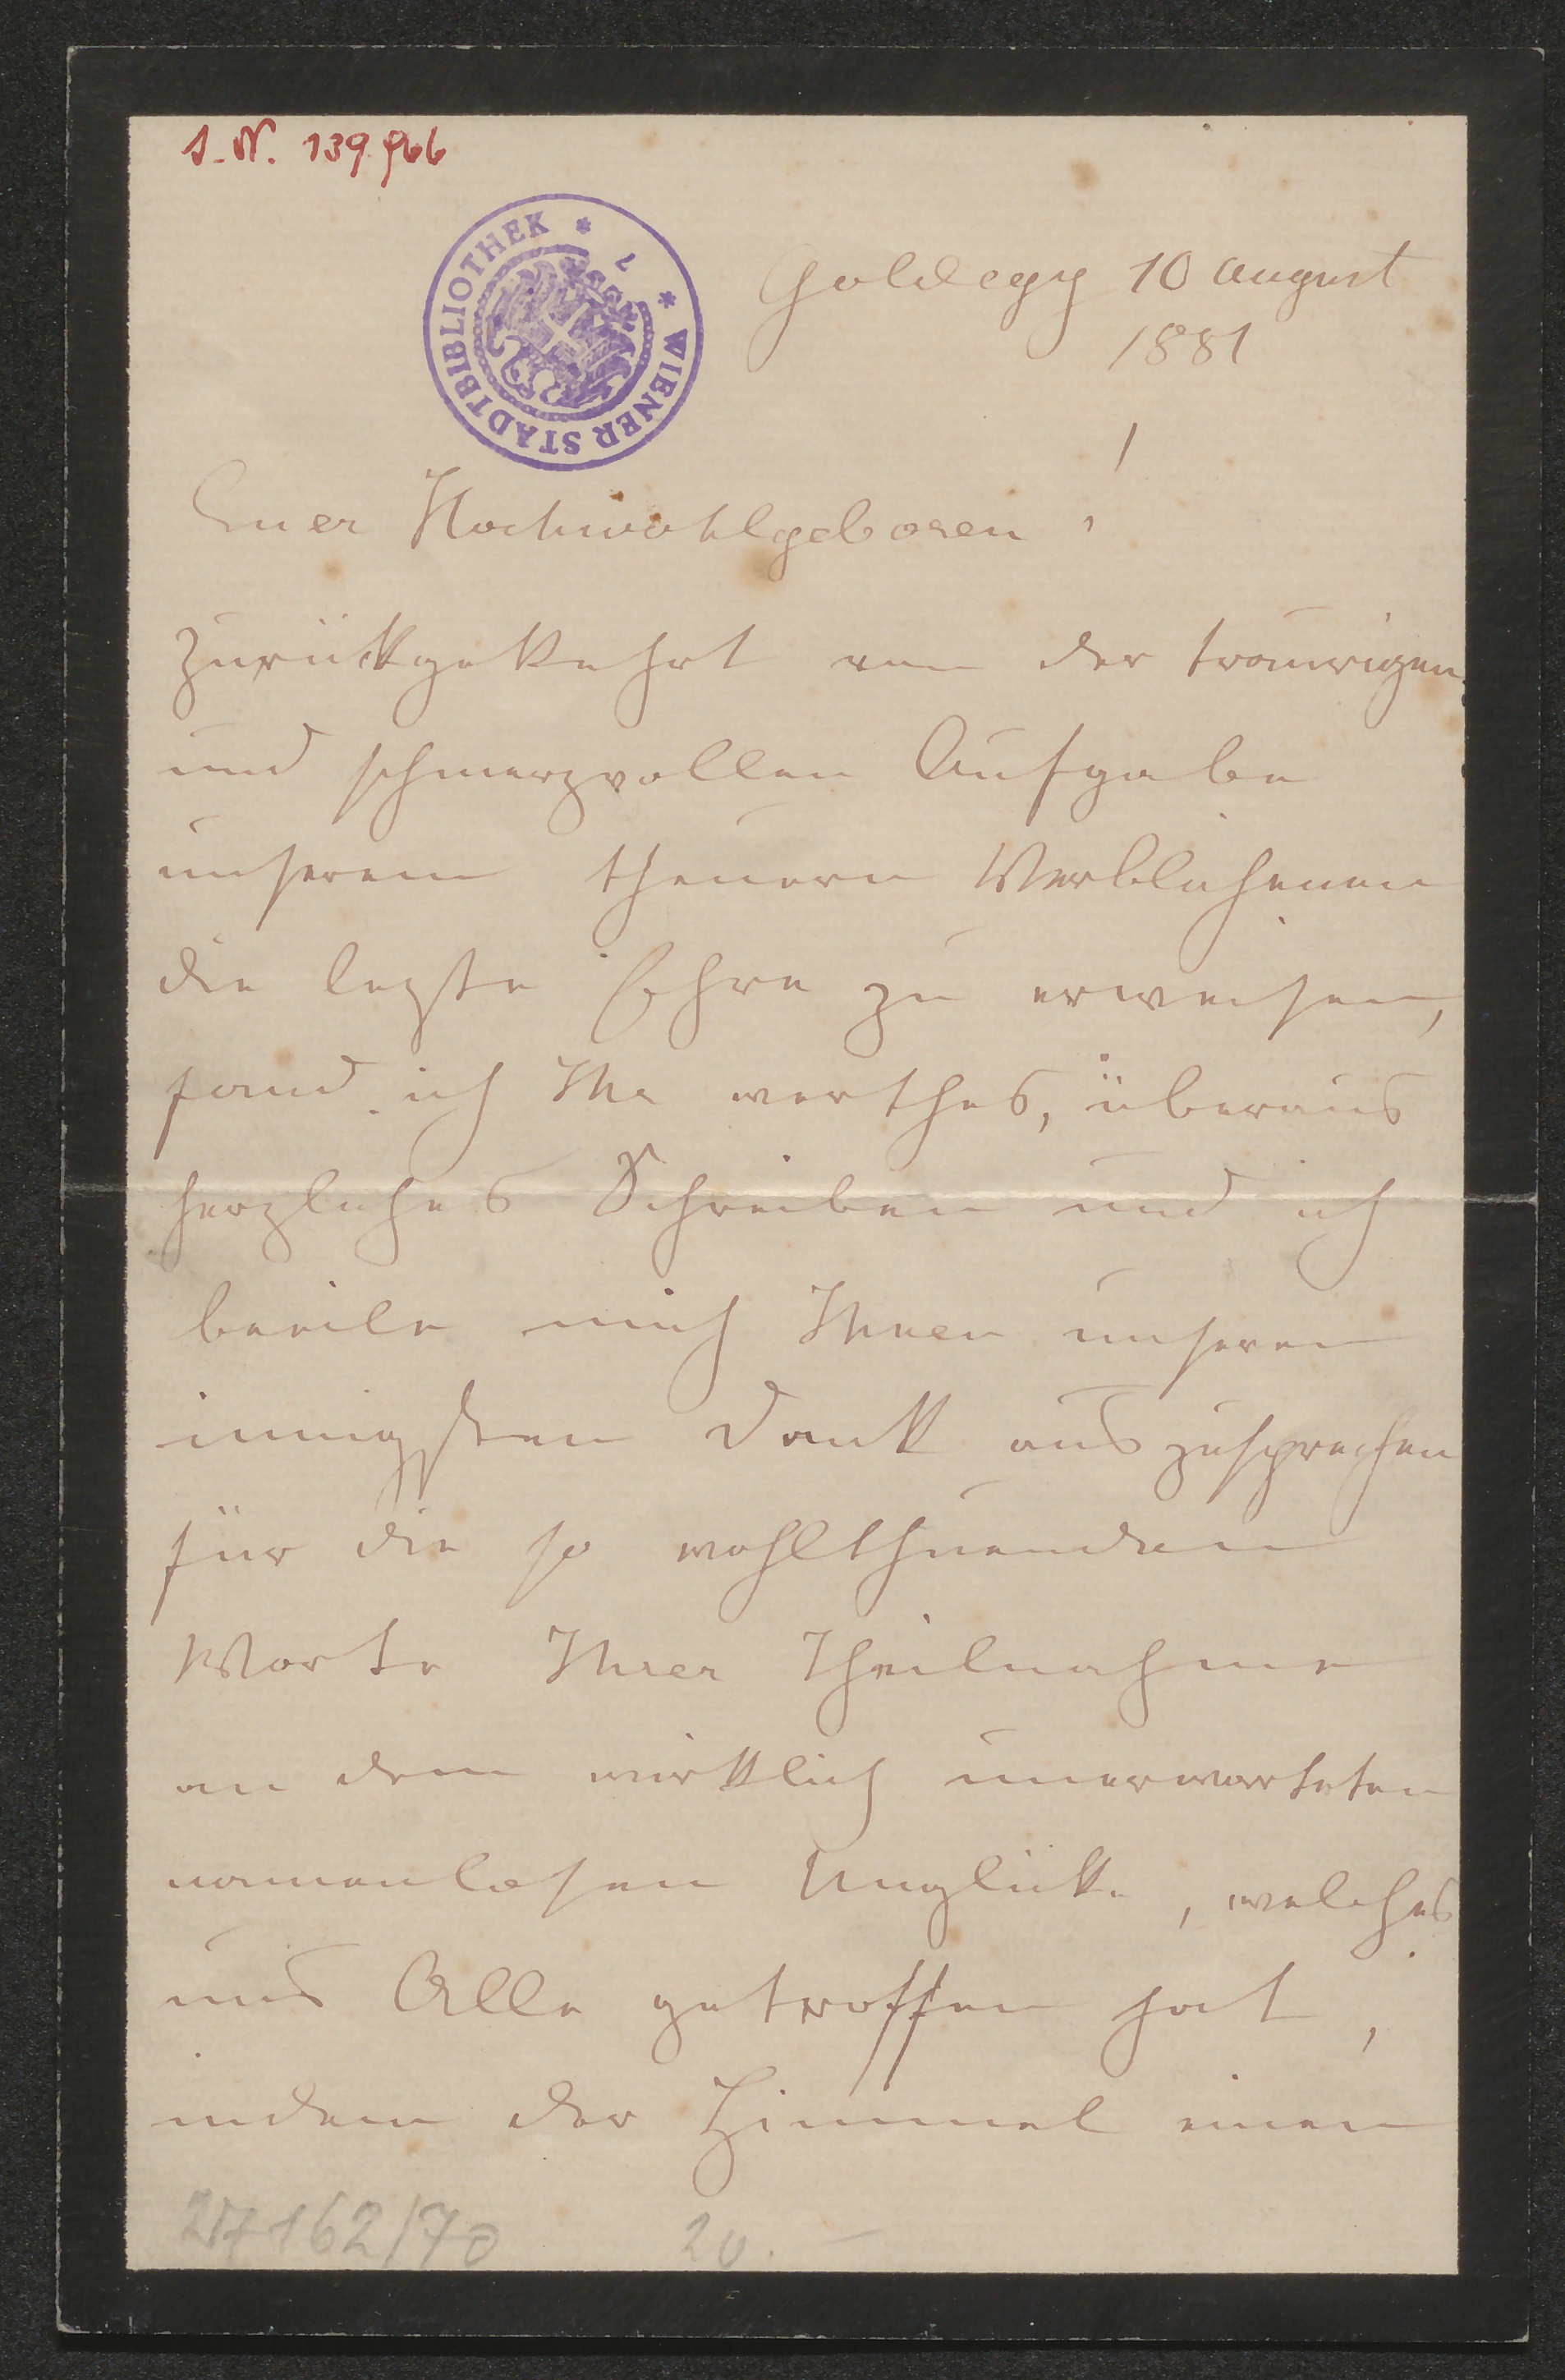 I.N. 139.966
WIENER STADTBIBLIOTHEK * L *
Goldegg 10 august
1881
Euer Hochwohlgeboren !
Zurückgekehrt von der traurigen
und schmerzvollen Aufgabe
unserem theuern Verblichenen
die lezte Ehre zu erweisen,
fand ich Ihr werthes, überaus
herzliches Schreiben und ich
beeile mich Ihnen unseren
innigsten Dank auszusprechen
für die so wohlthuenden
Worte Ihrer Theilnahme
an dem wirklich unerwarteten
namenlosen Unglücke, welches
uns Alle getroffen hat,
indem der Himmel einen
162/70 20.-